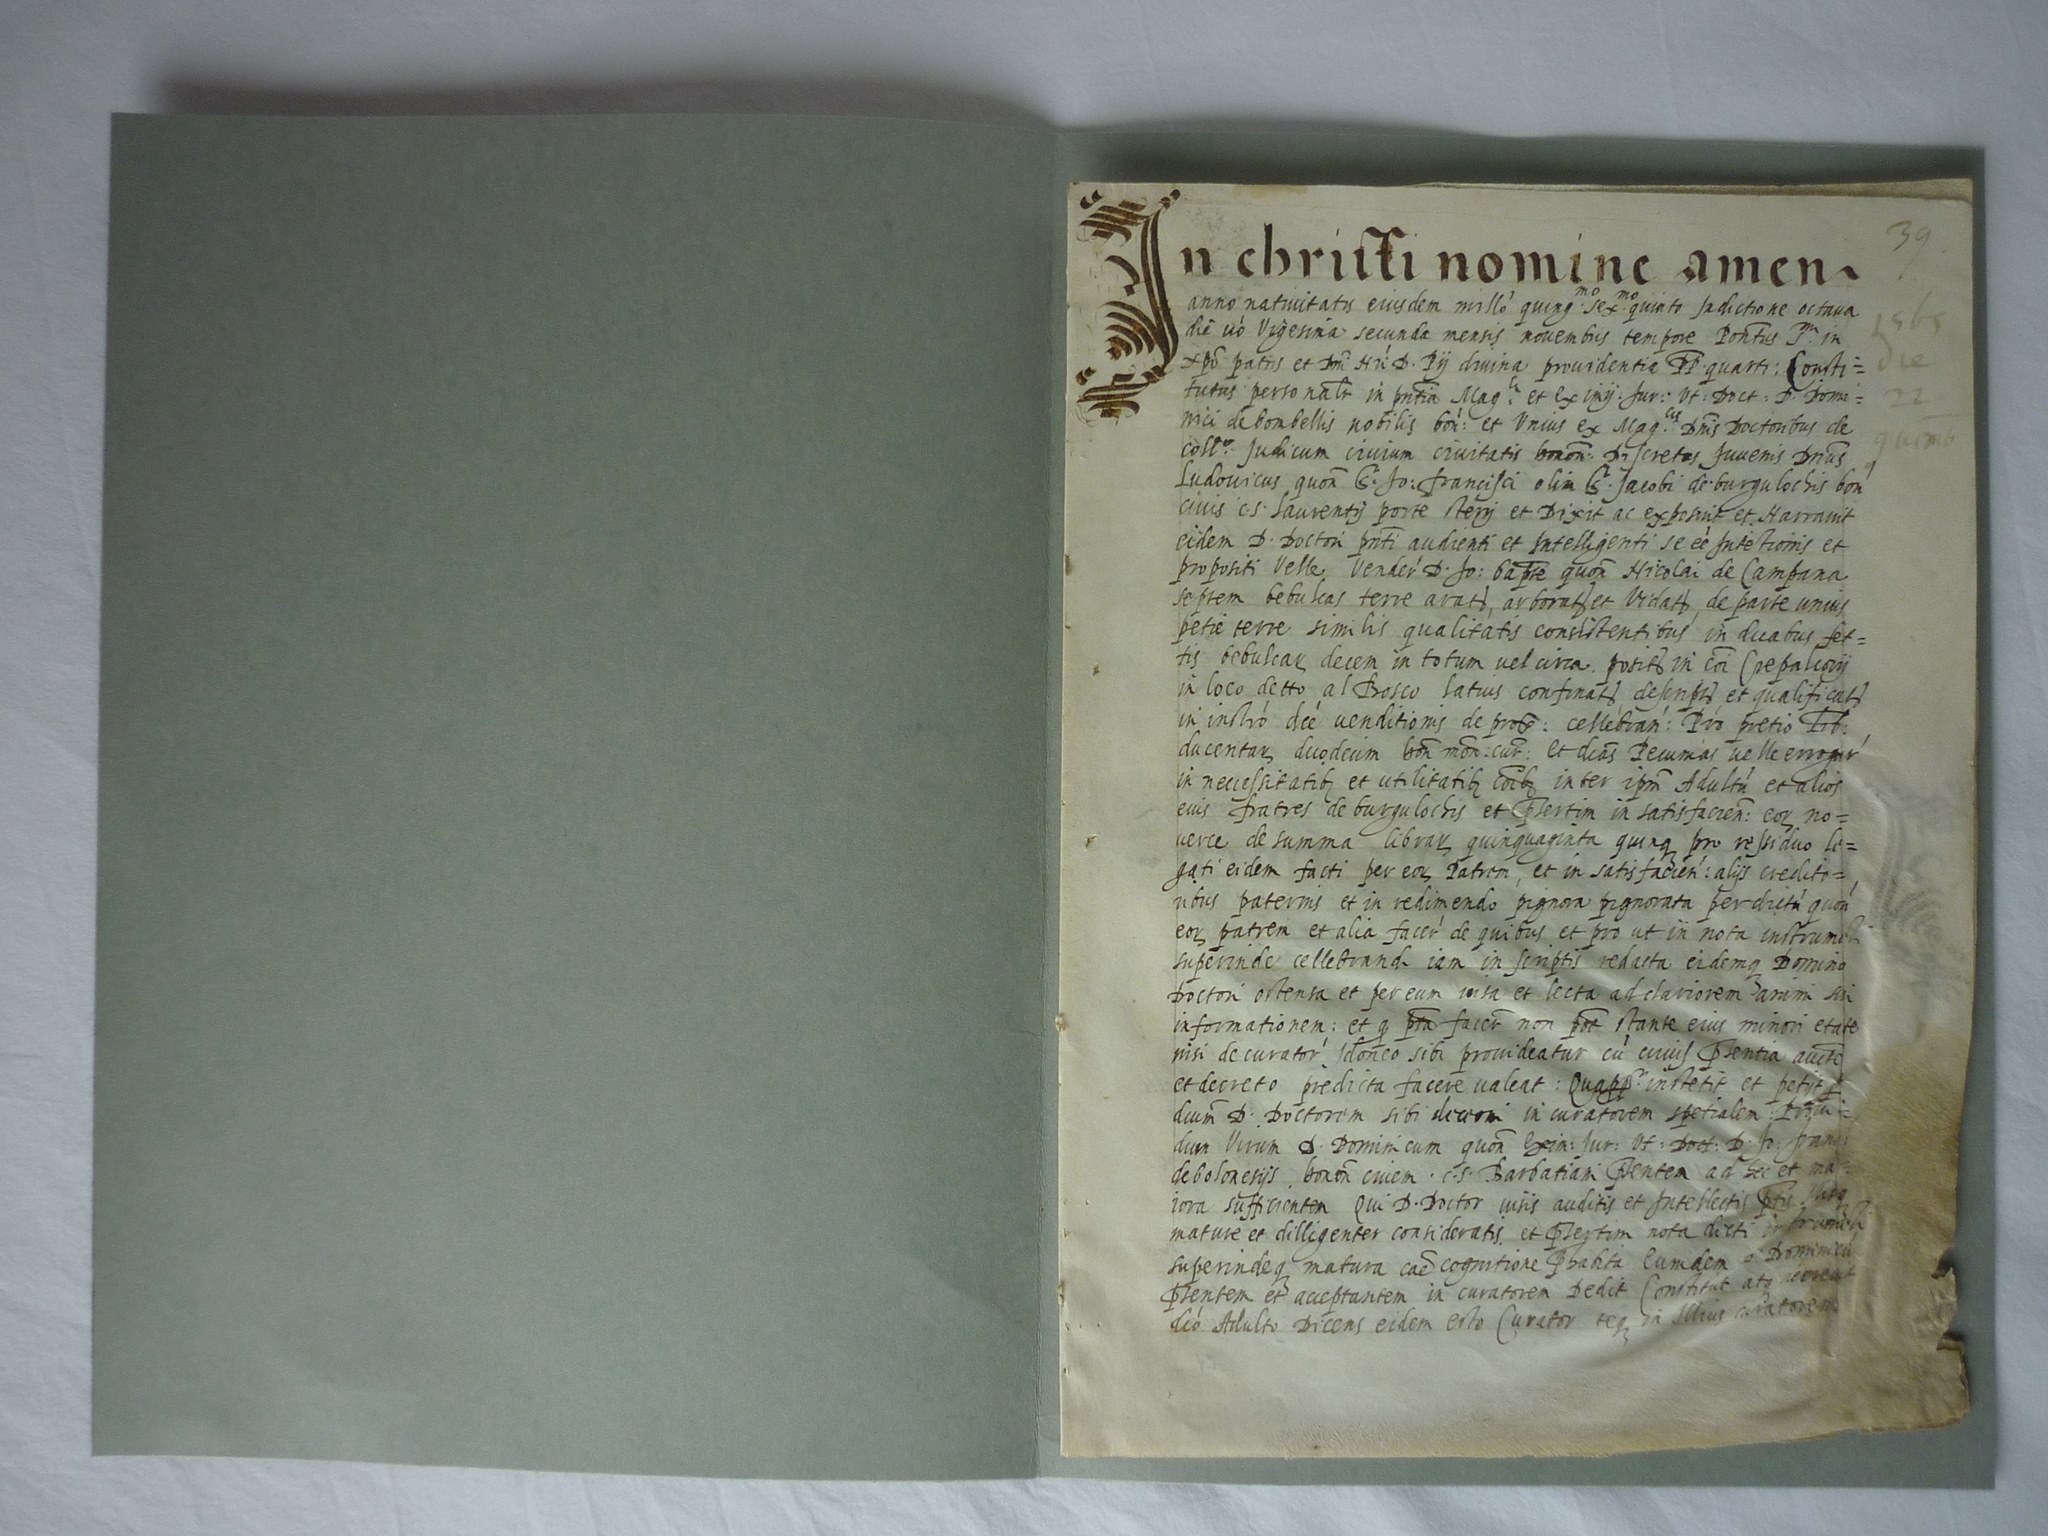 In christi nomine amen
39
anno nativitatis eiusdem millo quing.mo sex.mo quinto Indictione octava
1565
die vo Vigesima secunda mensis novembris tempore Pontus in
xpo patris et Dni D. Pij divina providentia PP. quarti: Consti=
die
tutus personalr in pntia Mag. et eximij. Jur: Vt: Doct: D. Domi=
22
nici de bombellis nobilis bon: et Unius ex Mag.cis Dnis Doctoribus de
Coll. Judicum civium civitatis bonon: Discretus Juvenis
Ludovicus quon S. Jo: francisci olim S. Jacobi de burgulochis bon
civis c.s. Laurentij porte sterij et Dixit ac exposuit et Narravit
eidem D. Doctori pnti audienti et Intelligenti se eē Intētionis et
propositi Velle Vender D. Jo: bapte quon Nicolai de Campana
septem bebulcas terre arat, arborat et Vidat, de parte unius
petie terre similis qualitatis consistentibus in duabus
tis bebulcar decem in totum vel circa posit in coi Crepalcorij
in loco detto al Bosco latius confinat, descript et qualificat
in instro dce venditionis de prox: cellebran: Pro pretio Lib:
ducentar duodecim bon mon: cur: Et dcas Pecunias velle errogar
in neccessitatib et utilitatib coib inter ipm Adultu et alios
eius fratres de burgulochis et Psertim in satisfacien: eor no=
verce de summa librar quinquaginta quinq pro residuo le=
gati eidem facti per eor Patrem, et in satisfacien: alijs credito=
ribus paternis et in redimendo pignora pignorata per dictu quon
eor patrem et alia facer de quibus et pro ut in nota instrumeti
superinde cellebrand iam in scriptis redacta eidemq Domino
Doctori ostensa et per eum visa et lecta ad clariorem animi sui
informationem: et q pta facer non pot stante eius minori etate
nisi de curator Idoneo sibi provideatur cu cuius Psentia
et decreto predicta facere valeat: institit et petijt
dium D. Doctorem sibi in curatorem spetialem
dum Virum D. Dominicum quon Exim: Jur: Vt: Doct: D. Jo:
de bolonesijs bonon civem c.s. Barbatiani Psentem ad hec et ma=
iora sufficientem Qui D. Doctor visis auditis et Intellectis
mature et dilligenter consideratis et Psertim nota dicti
superindeq matura cae cognitione Phabita Eumdem D. Dominicu
Psentem et acceptantem in curatorem Dedit Constituit atq decrevit
dco Adulto Dicens eidem esto Curator teq in Illius curatorem